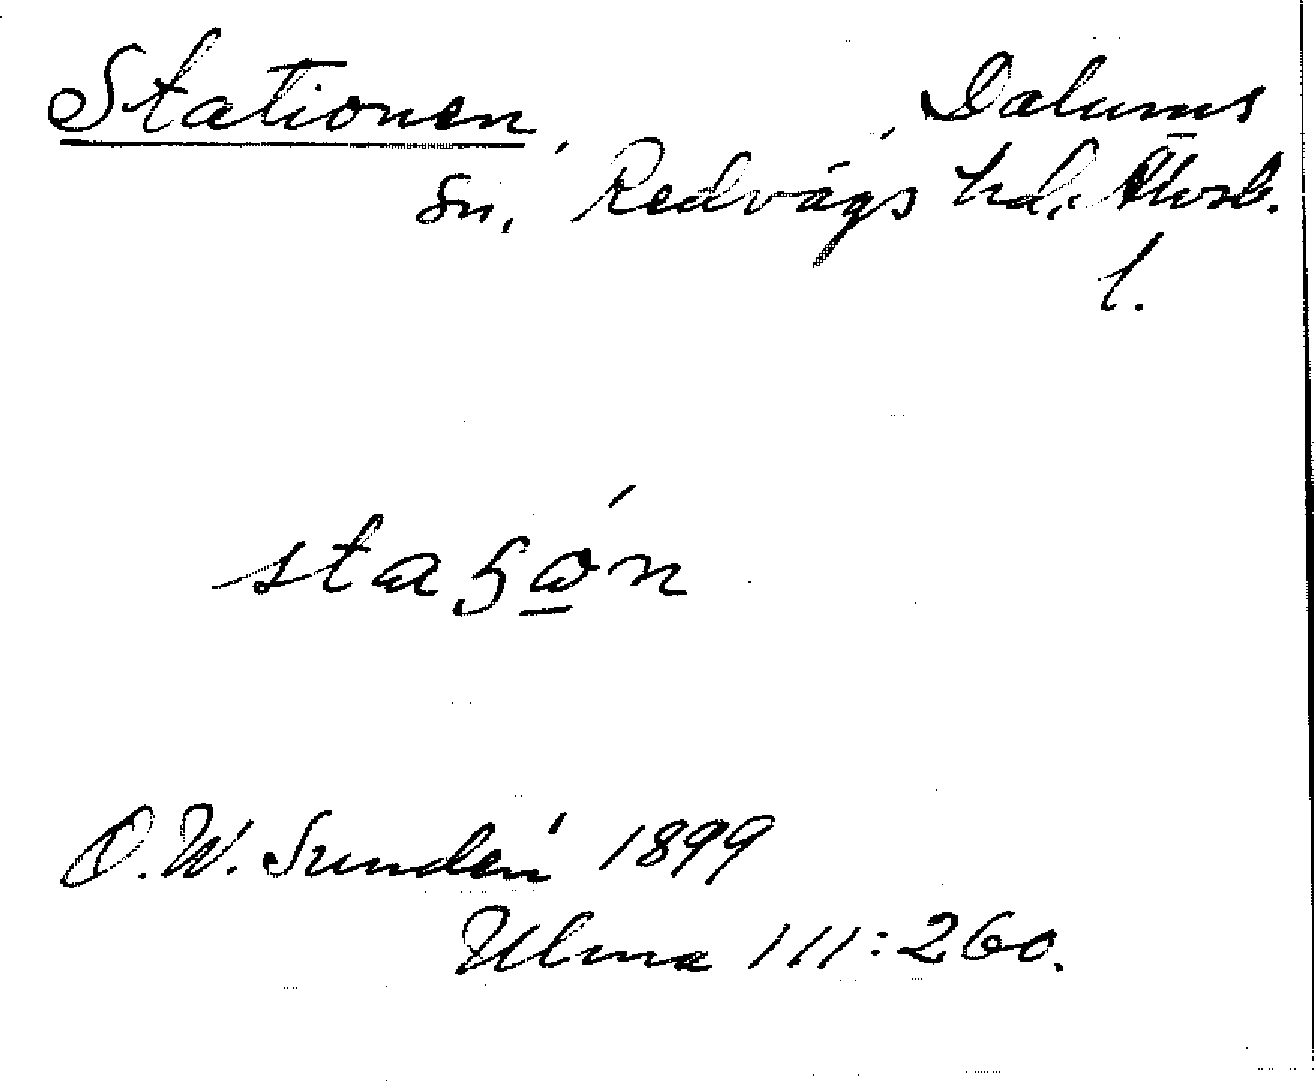 Stationen, Dalums
sn, Redvägs hd, Älvsb.
l.
staʒώ̲n
D.W. Sundén 1899
Ulma 111:260.